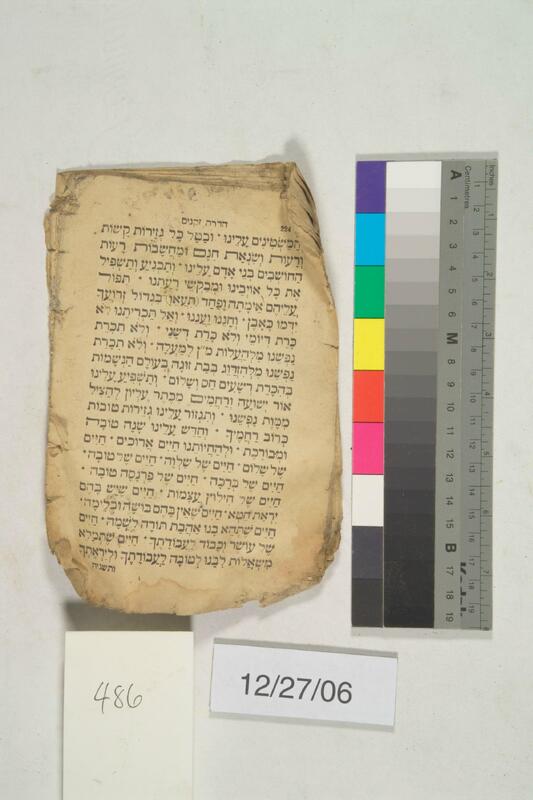 הדרת זקנים
224
הַמַּשְׂטִינִים עָלֵינוּ · וּבַטֵּל כָּל גְּזֵירוֹת קָשׁוֹת
וְרָעוֹת וְשִׂנְאַת חִנָּם וּמַחְשָׁבוֹת רָעוֹת
הַחוֹשְׁבִים בְּנֵי אָדָם עָלֵינוּ · וְתַכְנִיעַ וְתַשְׁפִּיל
אֶת כָּל אוֹיְבֵינוּ וּמְבַקְשֵׁי רָעָתֵנוּ · תִּפּוֹל
עֲלֵיהֶם אֵימָתָה וָפַחַד בִּגְדוֹל זְרוֹעֲךָ
יִדְּמוּ כָּאָבֶן · וְחָנֵּנוּ וַעֲנֵנוּ · וְאַל תַּכְרִיתֵנוּ לֹא
כָּרֵת דְּיוֹמֵי וְלֹא כָּרֵת דִּשְׁנֵי · וְלֹא תִכָּרֵת
נַפְשֵׁנוּ מִלְּהַעֲלוֹת מ״ן לְמַעְלָה · וְלֹא תִכָּרֵת
נַפְשֵׁנוּ מִלְּהִזְדַּוֵּג בְּבַת זוּגָהּ בְּעוֹלַם הַנְּשָׁמוֹת
בְּהִכָּרֵת רְשָׁעִים חַס וְשָׁלוֹם · וְתַשְׁפִּיעַ עָלֵינוּ
אוֹר יְשׁוּעָה וְרַחֲמִים מִכֶּתֶר עֶלְיוֹן לְהַצִּיל
מִמָּוֶת נַפְשֵׁנוּ · וְתִגְזוֹר עָלֵינוּ גְּזֵירוֹת טוֹבוֹת
כְּרוֹב רַחֲמֶיךָ · וְחַדֵּשׁ עָלֵינוּ שָׁנָה טוֹבָה
וּמְבוֹרֶכֶת · וּלְהַחֲיוֹתֵנוּ חַיִּים אֲרוּכִים · חַיִּים
שֶׁל שָׁלוֹם · חַיִּים שֶׁל שַׁלְוָה · חַיִּים שֶׁל טוֹבָה ·
חַיִּים שֶׁל בְּרָכָה · חַיִּים שֶׁל פַּרְנָסָה טוֹבָה ·
חַיִּים שֶׁל חִילּוּץ עֲצָמוֹת · חַיִּים שֶׁיֵּשׁ בָּהֶם
יִרְאַת חֵטְא · חַיִּים שֶׁאֵין בָּהֶם בּוּשָׁה וּכְלִימָה ·
חַיִּים שֶׁתְּהֵא בָנוּ אַהֲבַת תּוֹרָה לִשְׁמָהּ · חַיִּים
שֶׁל עוֹשֶׁר וְכָבוֹד לַעֲבוֹדָתֶךָ · חַיִּים שֶׁתְּמַלֵּא
מִשְׁאֲלוֹת לִבֵּנוּ לְטוֹבָה לַעֲבוֹדָתֶךָ וּלְיִרְאָתֶךָ
486
12/27/06
Inches
Centimetres
A 1 2 3 4 5 6 M 8 9 10 11 12 13 14 15 B 17 18 19